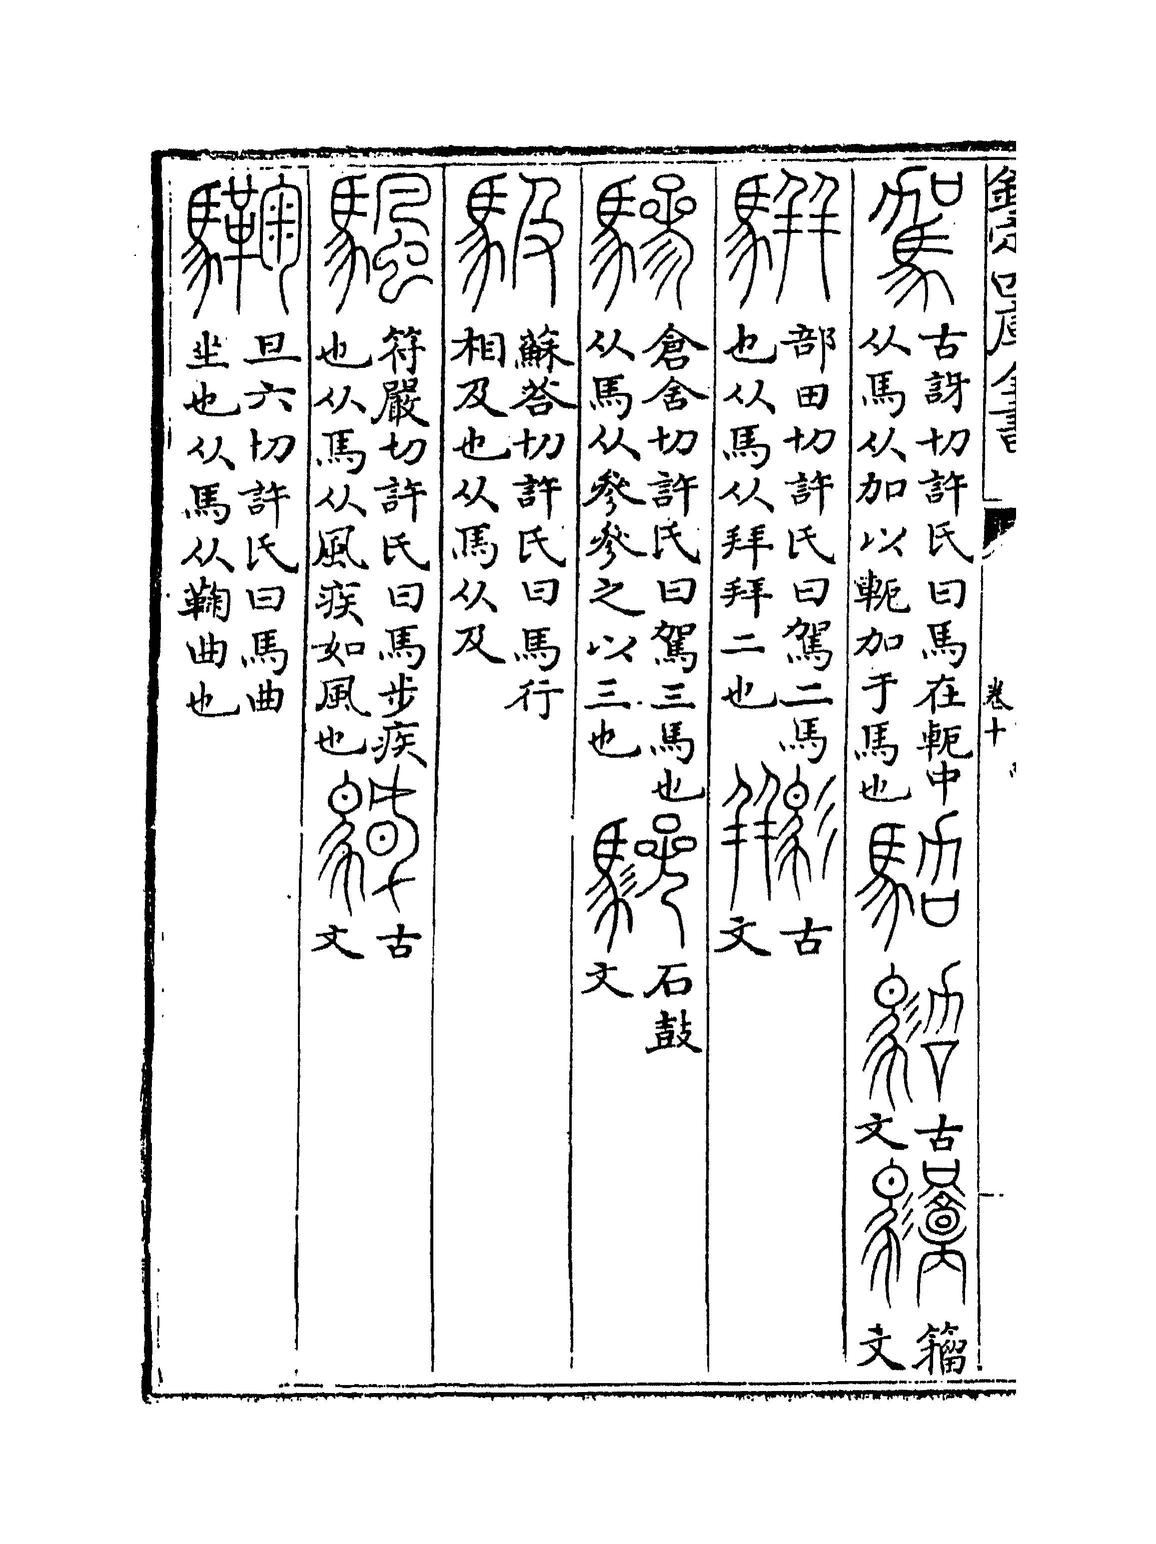 欽定四庫全書
卷十
駕 古訝切許氏曰馬在軛中
从馬从加以軛加于馬也
古文
籀文
駢 部田切許氏曰駕二馬
也从馬从拜拜二也
古文
驂 倉舍切許氏曰駕三馬也
从馬从參參之以三也
石鼓文
馺 蘇荅切許氏曰馬行
相及也从馬从及
颿 符嚴切許氏曰馬步疾
也从馬从風疾如風也
古文
旦六切許氏曰馬曲
坐也从馬从鞠曲也